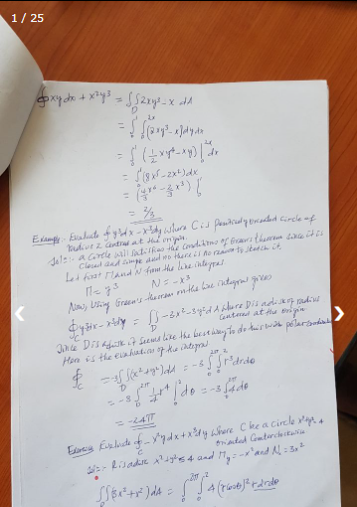 1 / 25
∮xydx + x²y³ = ∫∫ 2xy³ - x dA
D
= ∫₀¹ ∫₀²ˣ (2xy³ - x) dy dx
= ∫₀¹ (½ xy⁴ - xy) |₀²ˣ dx
= ∫₀¹ (8x⁵ - 2x²) dx
= (4/3 x⁶ - 2/3 x³) |₀¹
= 2/3
Example:- Evaluate ∮ y³dx - x³dy where C is positively oriented circle of
radius 2 centred at the origin.
Sol:- a Circle will satisfies the conditions of Greens theorem since it is
Closed and simple and so there is no reason to sketch it.
Let first M and N from the line integral
M = y³ N = -x³
Now, Using Greens theorem on the line integral gives
∮ y³dx - x³dy = ∫∫ -3x² - 3y² dA where D is a disk of radius
D centred at the origin
Since D is a disk it seems like the best way to do this is with polar
Here is the evaluation of the integral
∮ = -3∫∫(x²+y²)dA = -3 ∫₀²π ∫₀² r³ dr dθ
C
= -3 ∫₀²π ¼ r⁴ |₀² dθ = -3 ∫₀²π 4 dθ
= -24π
Exercise Evaluate ∮ -x²y dx + x³dy where C be a circle x²+y² = 4
oriented Counterclockwise
Sol:- R is a disk x²+y² ≤ 4 and My = -x² and Nx = 3x²
∫∫(3x² + x²) dA = ∫₀²π ∫₀² 4 (r cosθ)² r dr dθ